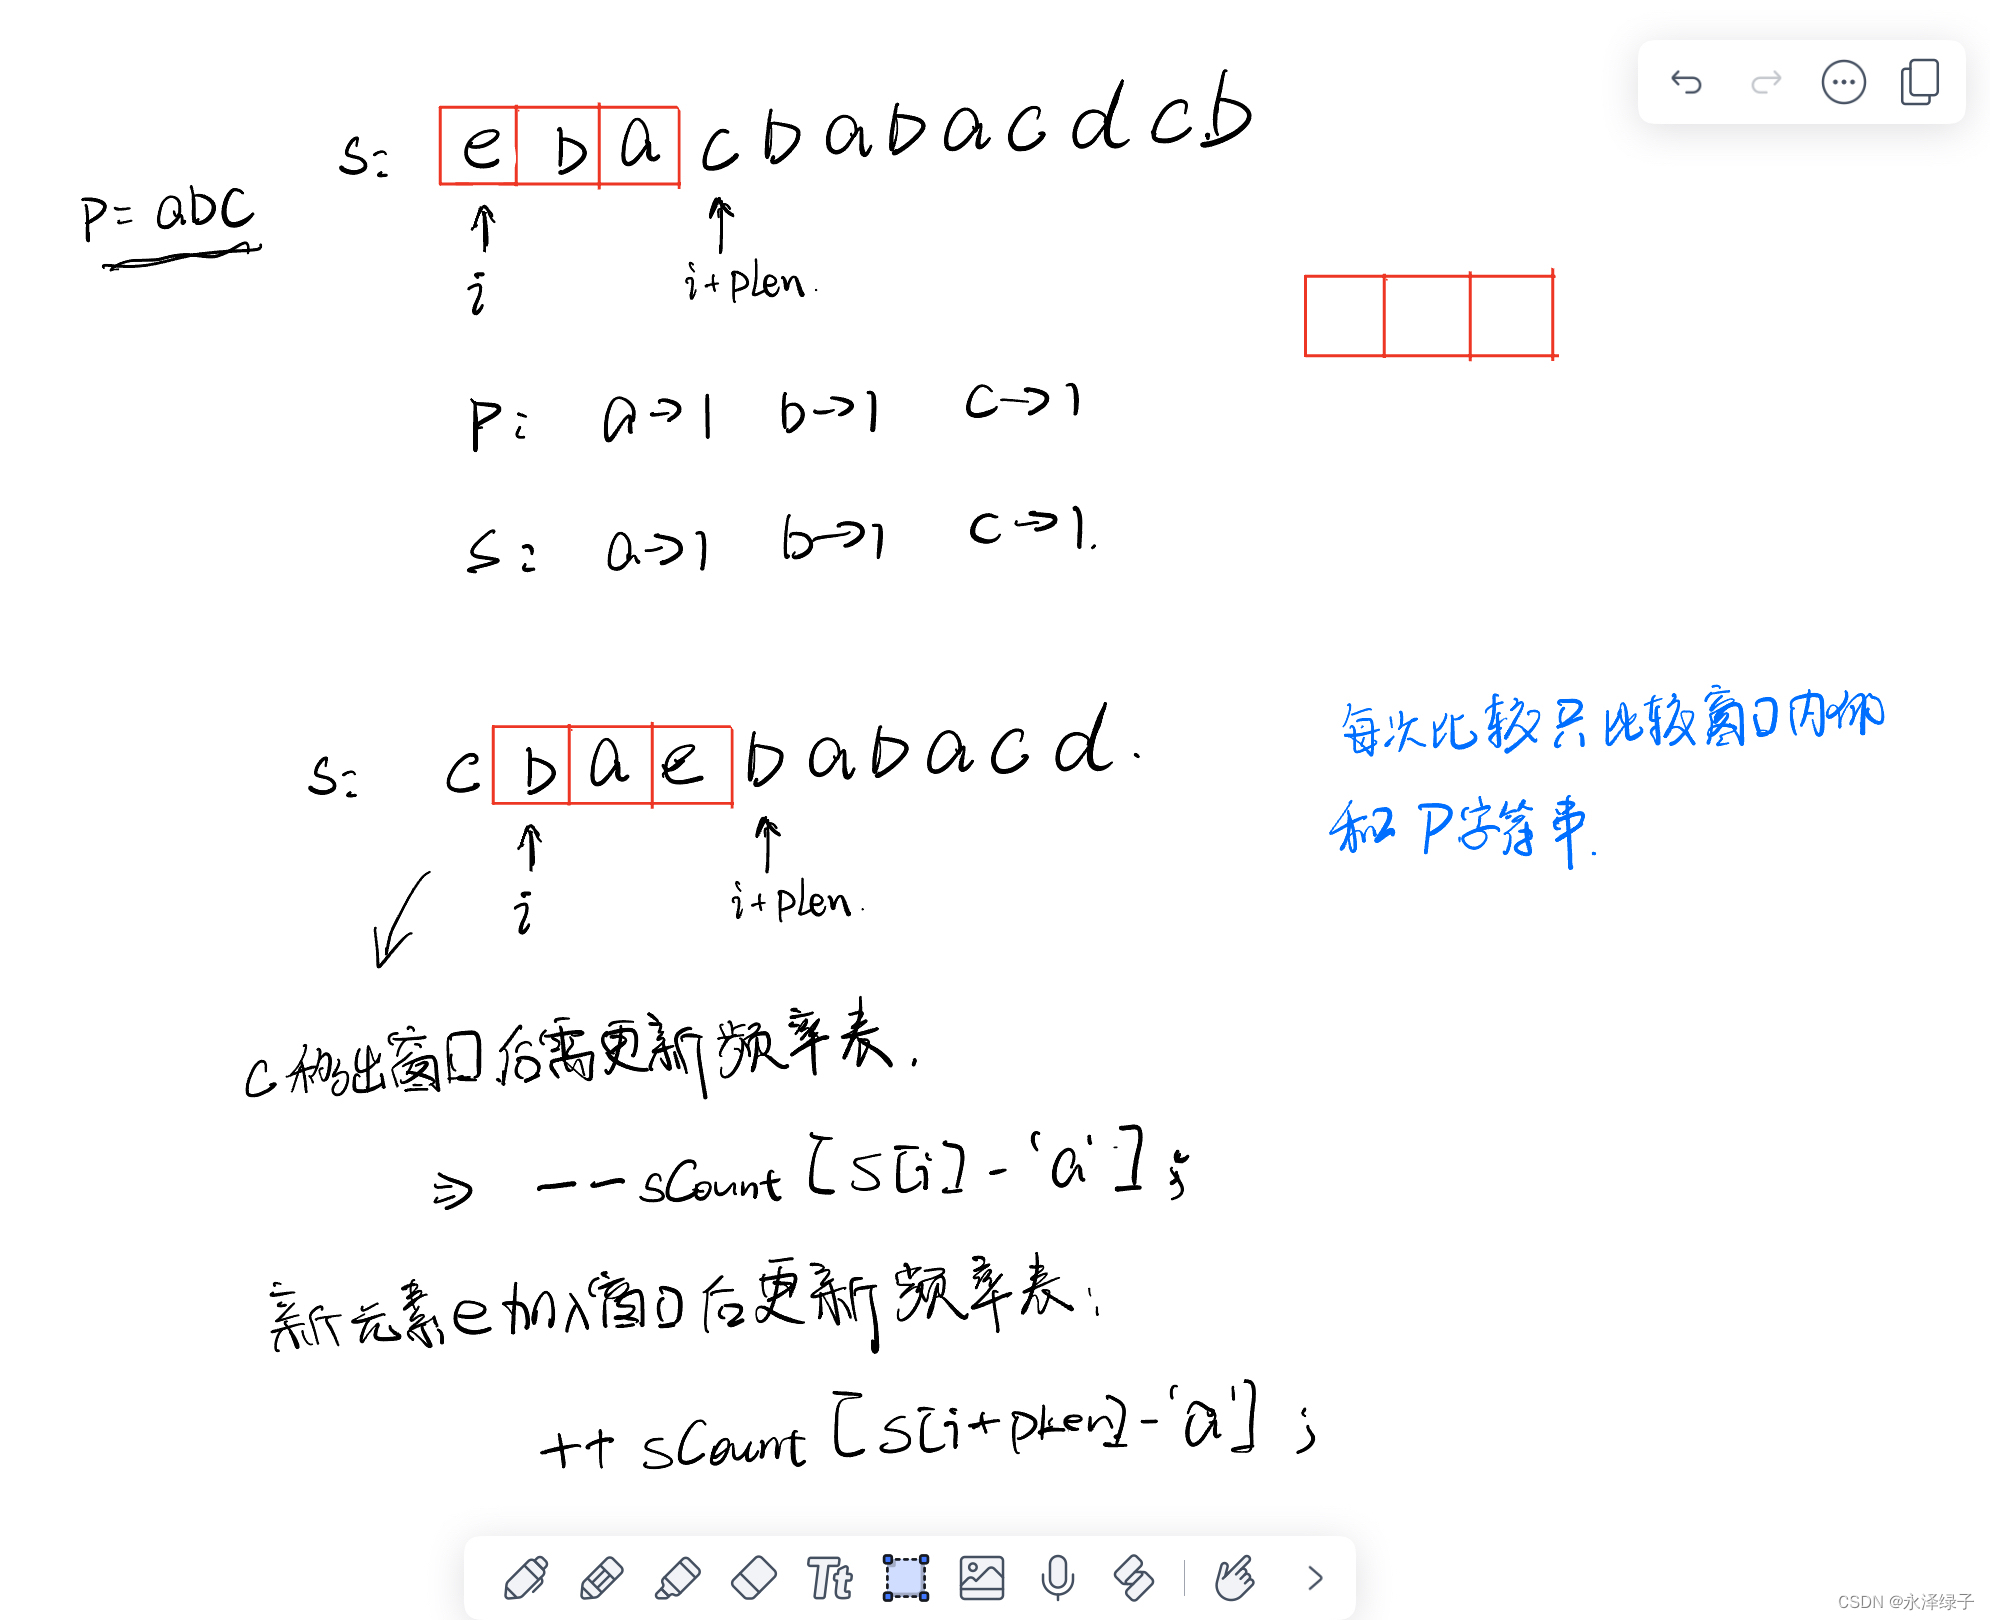 s: e b a c b a b a c d c b
p = abc
i
i+pLen.
p: a→1 b→1 c→1
s: a→1 b→1 c→1.
s: c b a e b a b a c d.
每次比较只比较窗口内的
和 P字符串.
i
i+pLen.
c移出窗口后需更新频率表.
⇒ --sCount[s[i]-'a'];
新元素e加入窗口后更新频率表:
++sCount[s[i+pLen]-'a'];
Tt
CSDN @永泽绿子